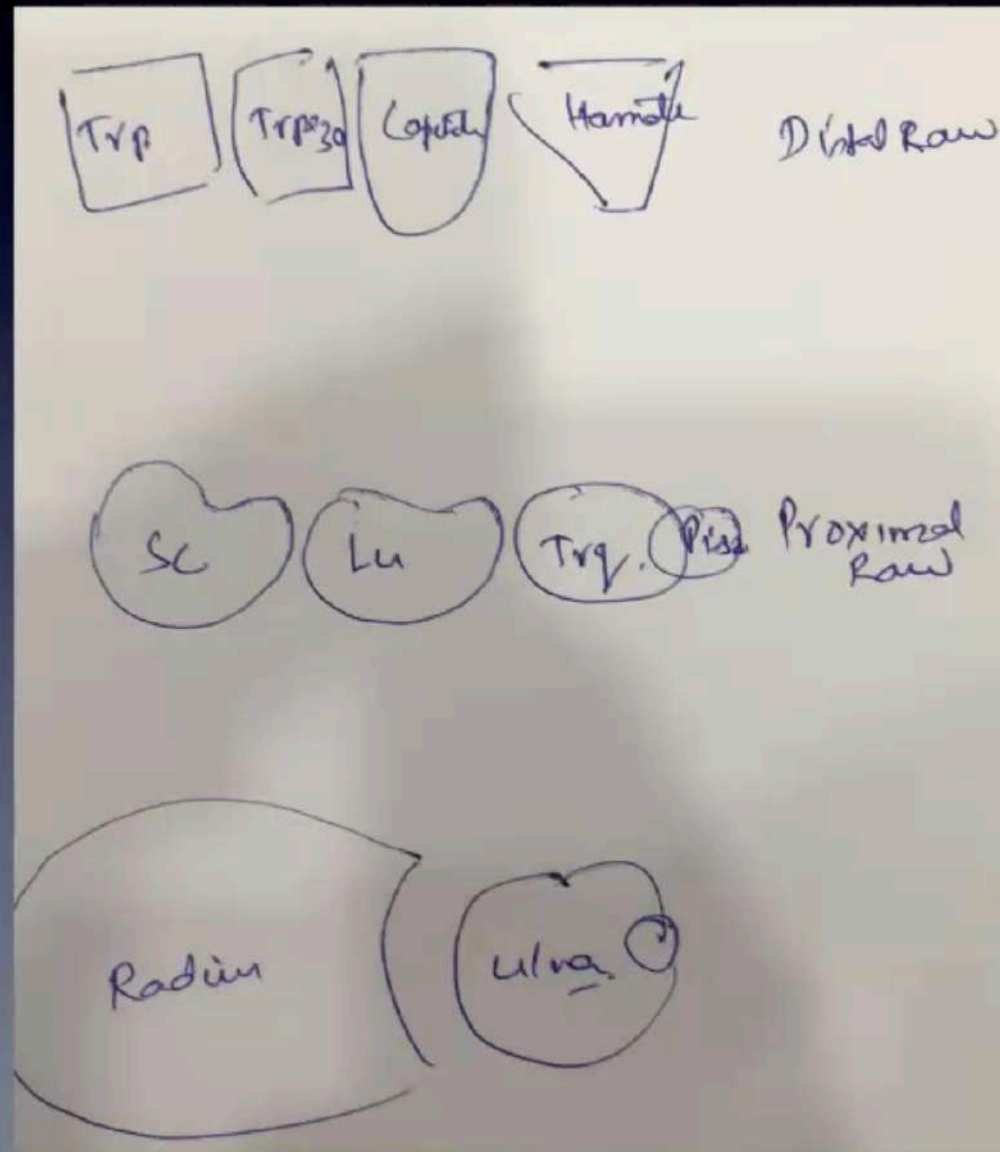 Trp Trpzo Capitate Hamate Distal Raw
Sc Lu Trq. Pisi Proximal
Raw
Radius Ulna